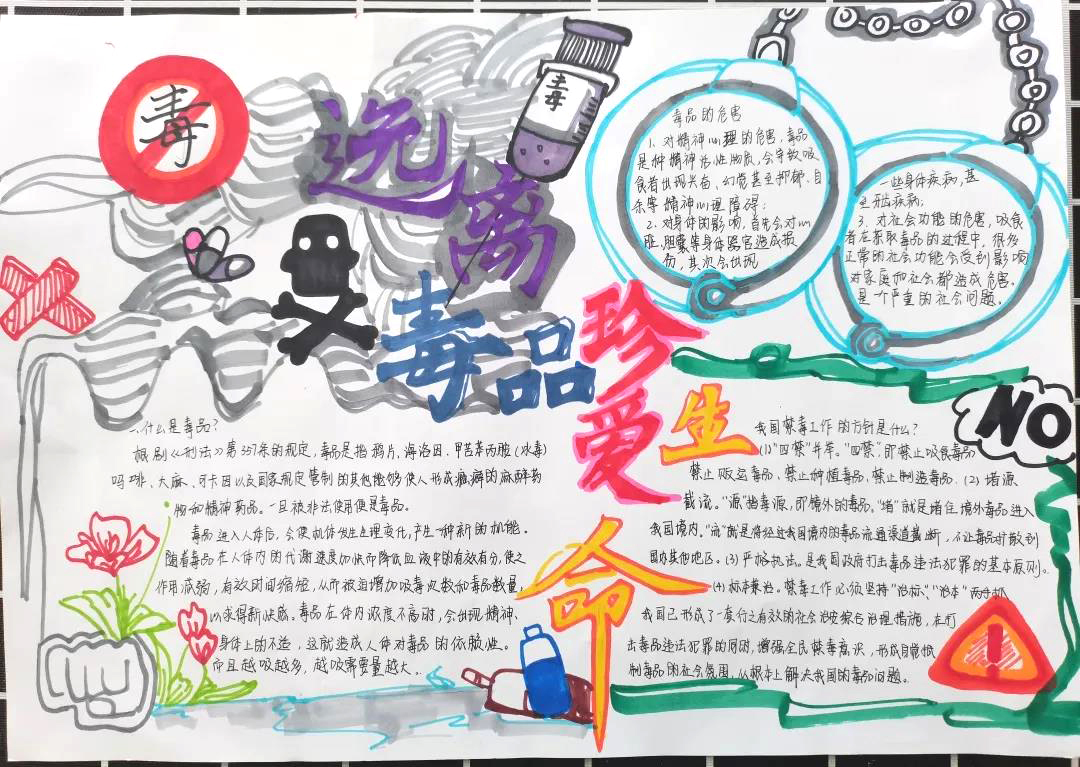 毒
远离
毒品
毒
珍爱
生
命
NO
毒品的危害
1、对精神心理的危害,毒品
是种精神活性物质,会导致吸
食者出现兴奋、幻觉甚至抑郁、自
杀等精神心理障碍;
2、对身体的影响,首先会对心
脏、胆囊等身体器官造成损
伤,其次会出现
一些身体疾病,甚
至
3、对社会功能的危害,吸食
者在获取毒品的过程中,很多
正常的社会功能会受到影响
对家庭和社会都造成危害。
是一个严重的社会问题。
什么是毒品?
根别《刑法》第357条的规定,毒品是指鸦片、海洛因、甲苯丙胺(冰毒)
吗啡、大麻、可卡因以及国家规定管制的其他能够使人形成瘾癖的麻醉药
物和精神药品。一旦被非法使用便是毒品。
毒品进入人体后,会使机体发生生理变化,产生一种新的机能。
随着毒品在人体内的代谢速度加快而降低血液中的有效有分,使之
作用减弱,有效时间缩短,从而被迫增加吸毒次数和毒品数量,
以求得新快感。毒品在体内浓度不高时,会出现精神、
身体上的不适,这就造成人体对毒品的依赖性。
而且越吸越多,越吸需要量越大。
我国禁毒工作的方针是什么?
(1)“四禁”并举。“四禁”,即禁止吸食毒品
禁止贩运毒品、禁止种植毒品、禁止制造毒品。(2)堵源
截流。“源”指毒源,即境外的毒品,“堵”就是堵住境外毒品进入
我国境内。“流”就是将经过我国境内的毒品流通渠道截断,不让毒品扩散到
国内其他地区。(3)严格执法。是我国政府打击毒品违法犯罪的基本原则。
(4)标本兼治。禁毒工作必须坚持“治标”、“治本”两手抓
我国已形成了一套行之有效的社会治安综合治理措施,在打
击毒品违法犯罪的同时,增强全民禁毒意识,形成自觉抵
制毒品的社会氛围,从根本上解决我国的毒品问题。